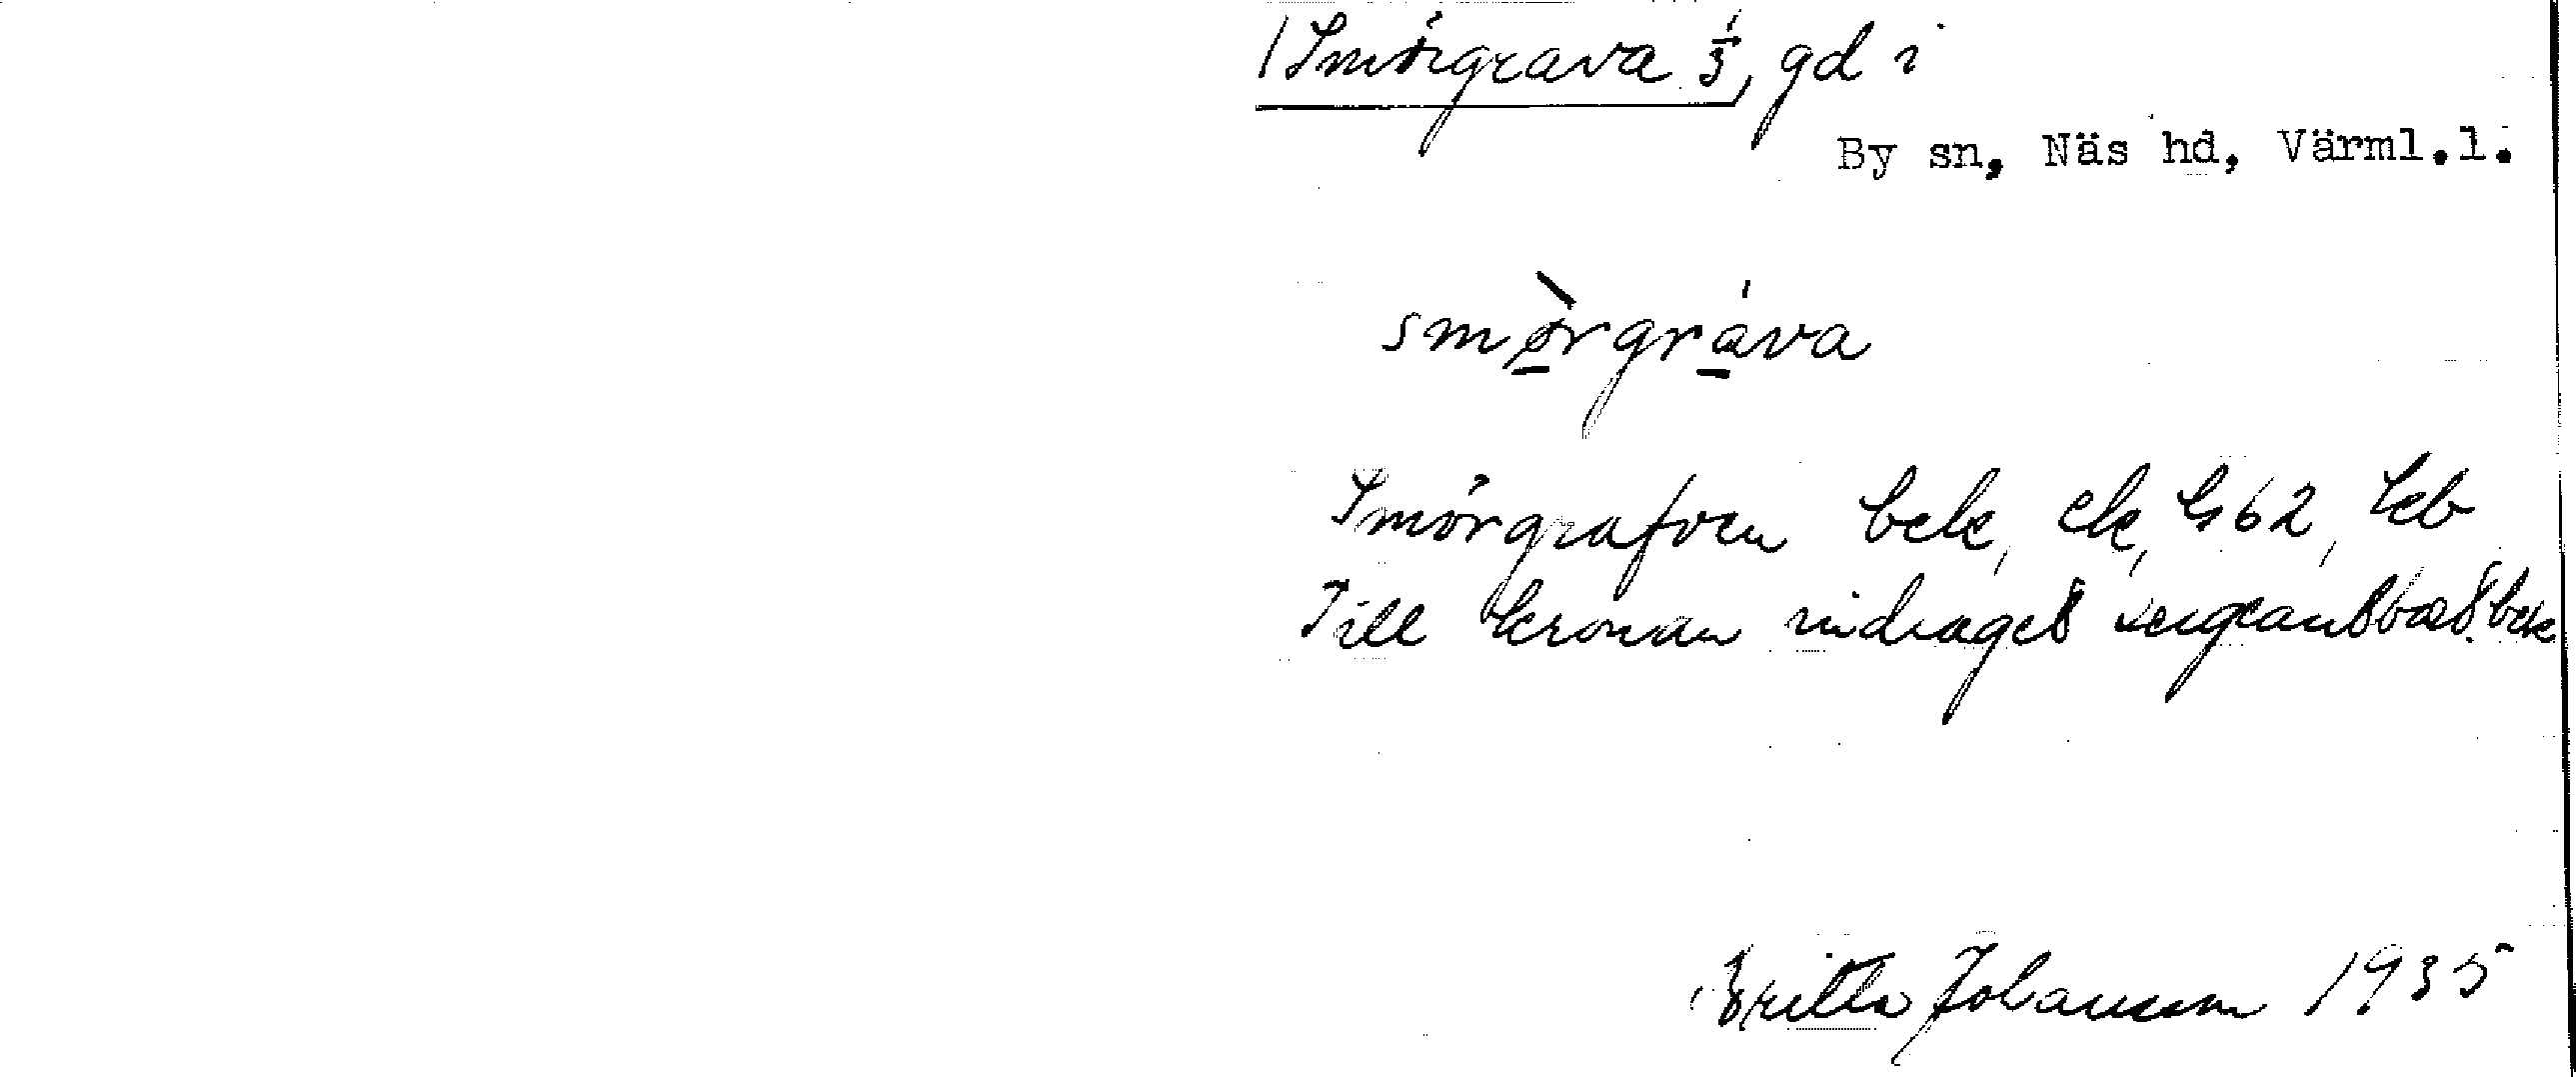 1 Smörgrava 1/3, gd i
By sn, Näs hd, Värml.l.
smø̀rgráva
Smörgrafven bek, ek, G62, Leb
Till Kronan indraget sergeantbost. bek
Britta Johansson 1935